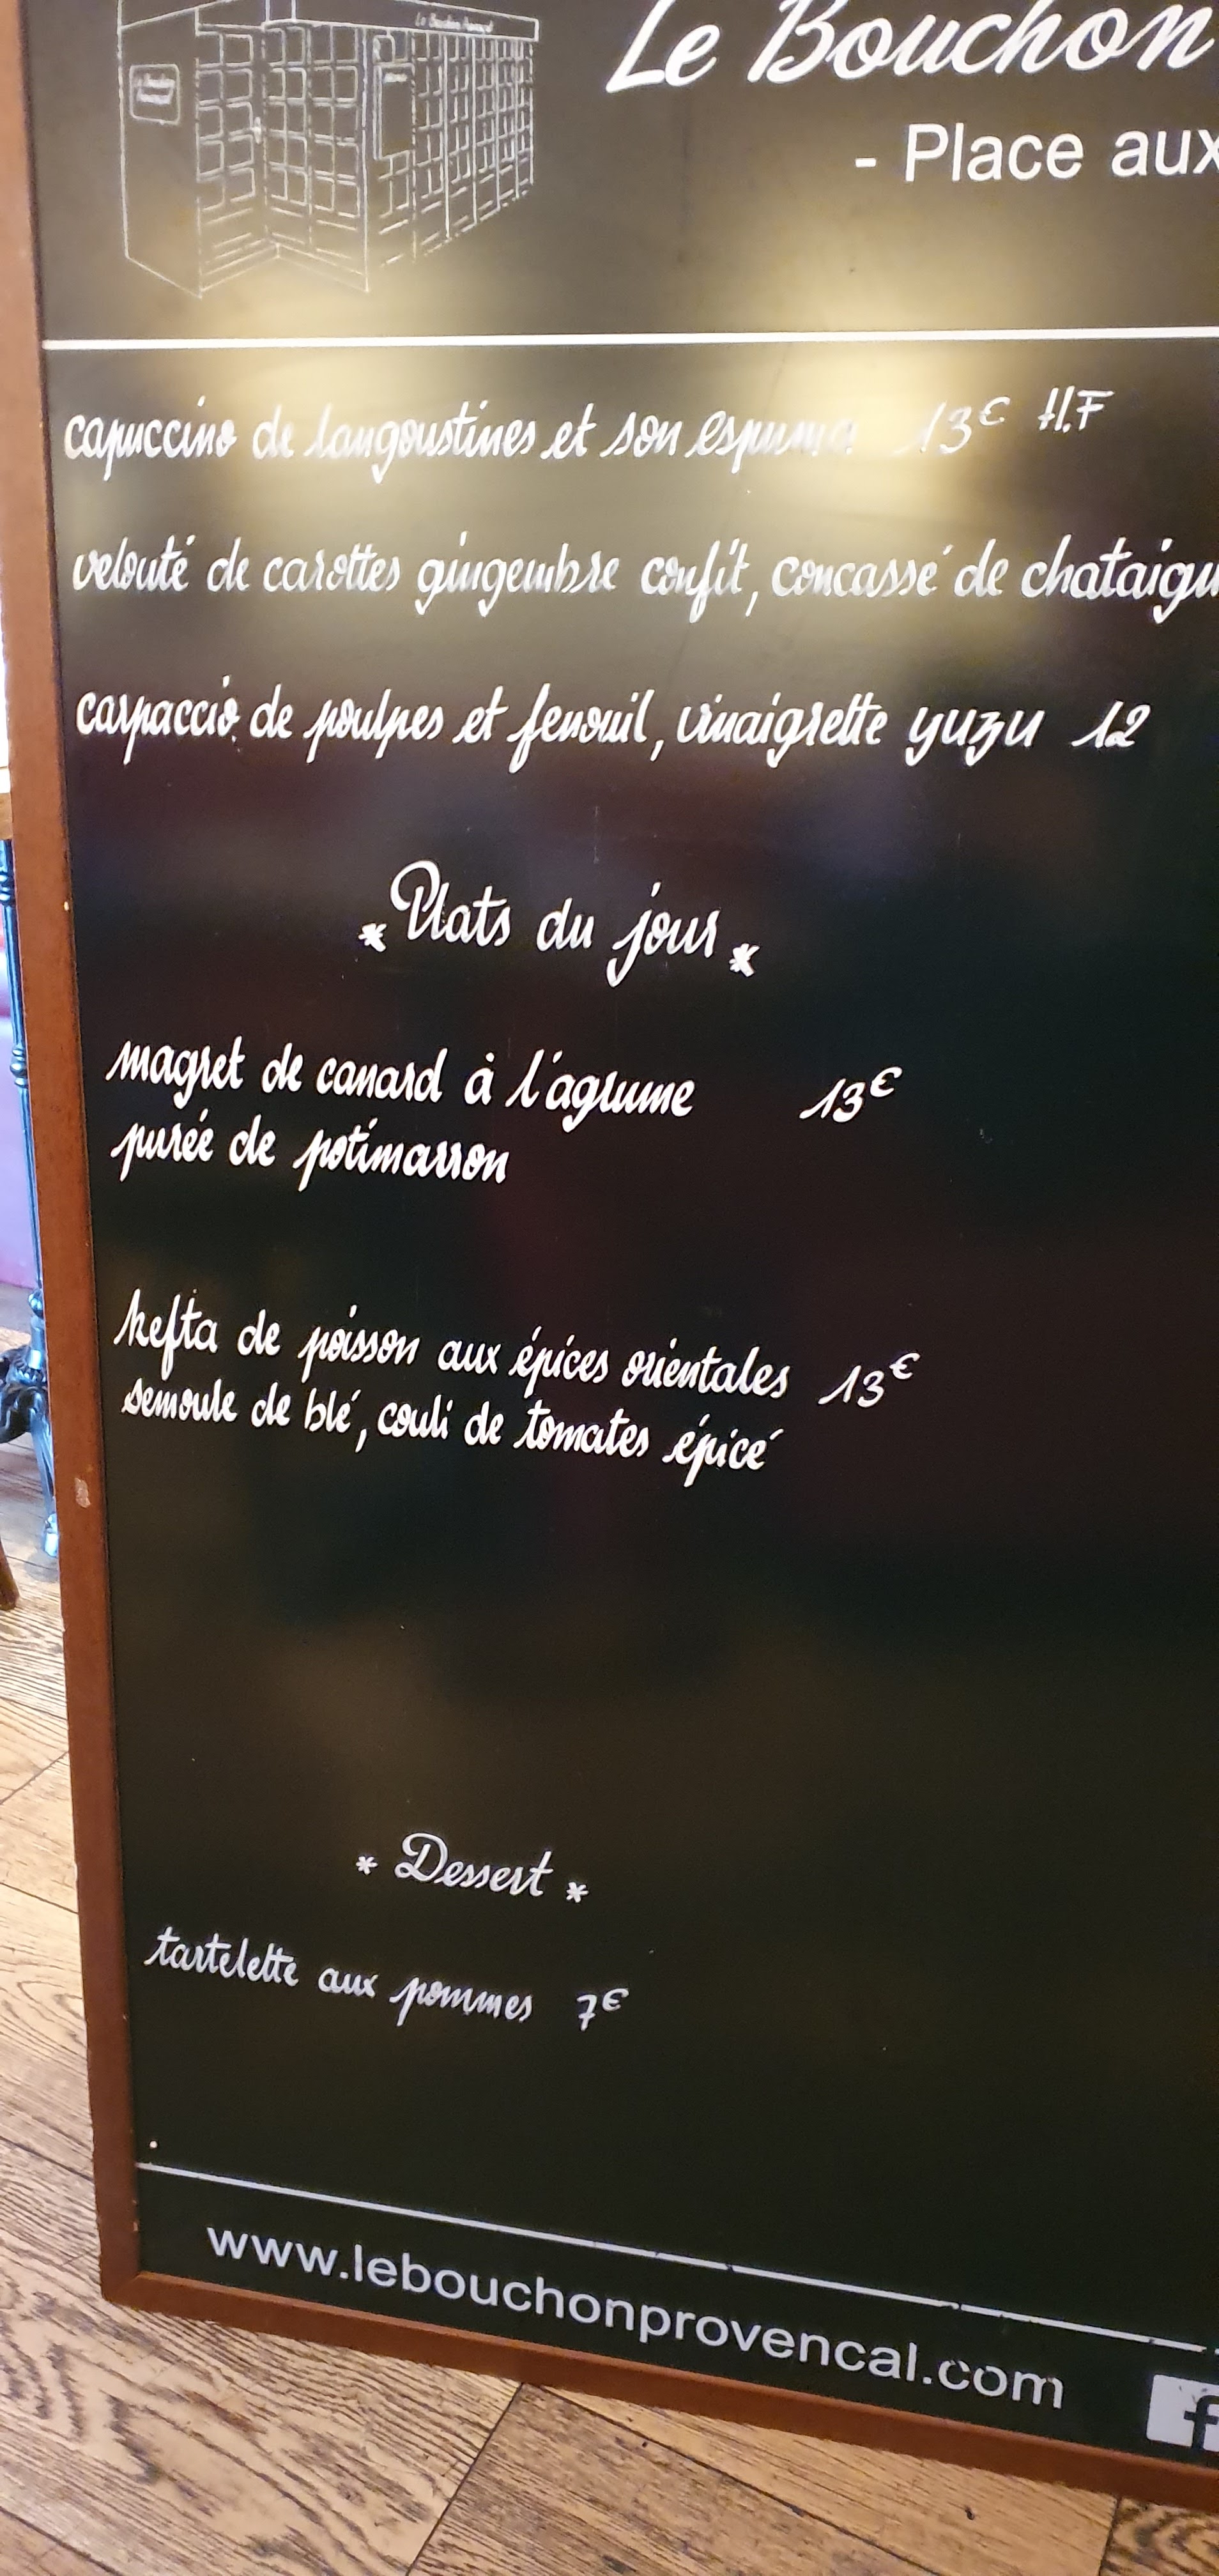 Le Bouchon Provençal
Le Bouchon
- Place aux
capuccino de langoustines et son espuma 13€ H.F
velouté de carottes gingembre confit, concassé de chataign
carpaccio de poulpes et fenouil, vinaigrette yuzu 12
* Plats du jour *
magret de canard à l'agrume 13€
purée de potimarron
kefta de poisson aux épices orientales 13€
semoule de blé, couli de tomates épicé
* Dessert *
tartelette aux pommes 7€
www.lebouchonprovencal.com
f